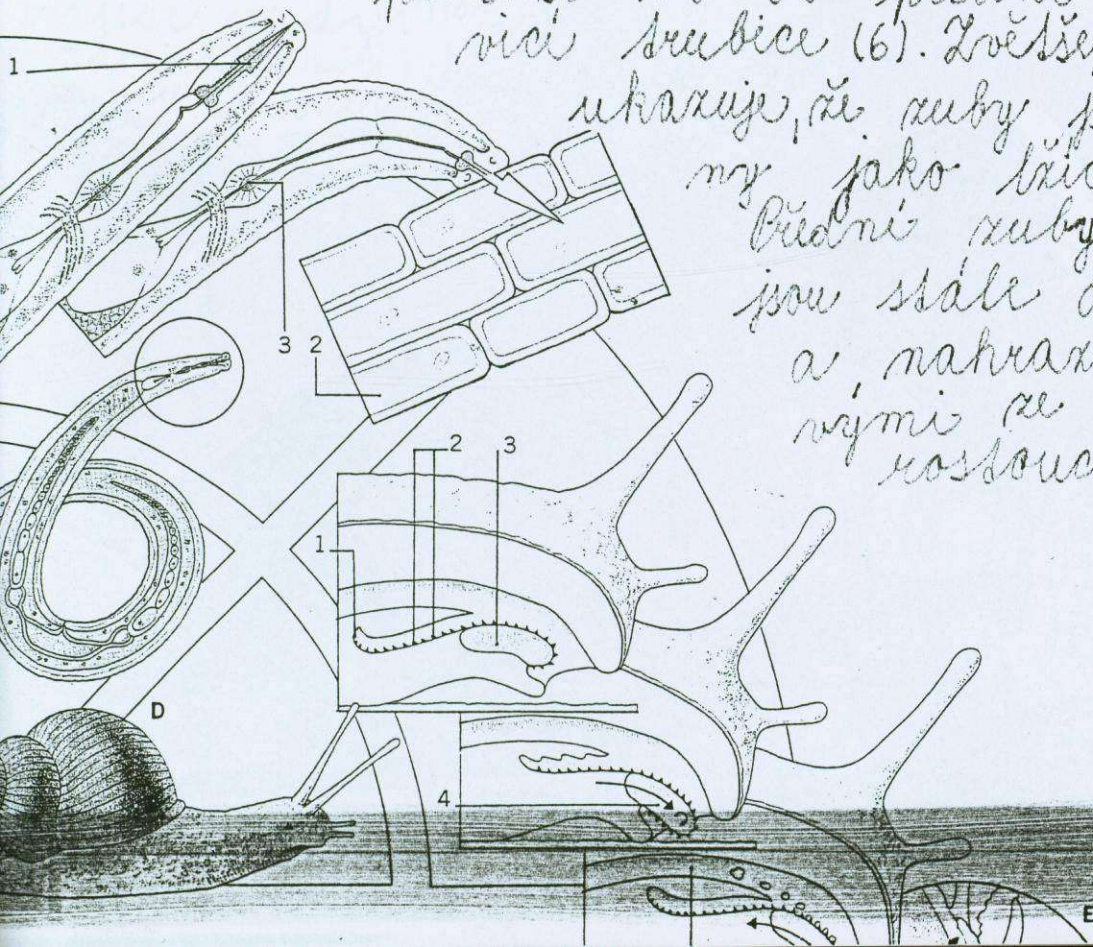 vící trubice (6). Zvětše
ukazuje, že zuby j
ny jako lžíc
Přední zuby
jsou stále o
a nahraz
vými ze
rostouc
1
3 2
2 3
1
D
4
E